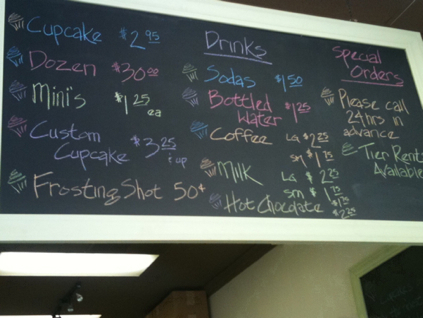 Cupcake $2.95
Dozen $30.00
Mini's $1.25 ea
Custom
Cupcake $3.25 & up
Frosting Shot 50¢
Drinks
Sodas $1.50
Bottled
Water $1.25
Coffee LG $2.25
Sm
Milk LG $2.25
sm $1.75
Hot Chocolate
Special
Orders
Please call
24 hrs in
advance
Tier Rent
Available